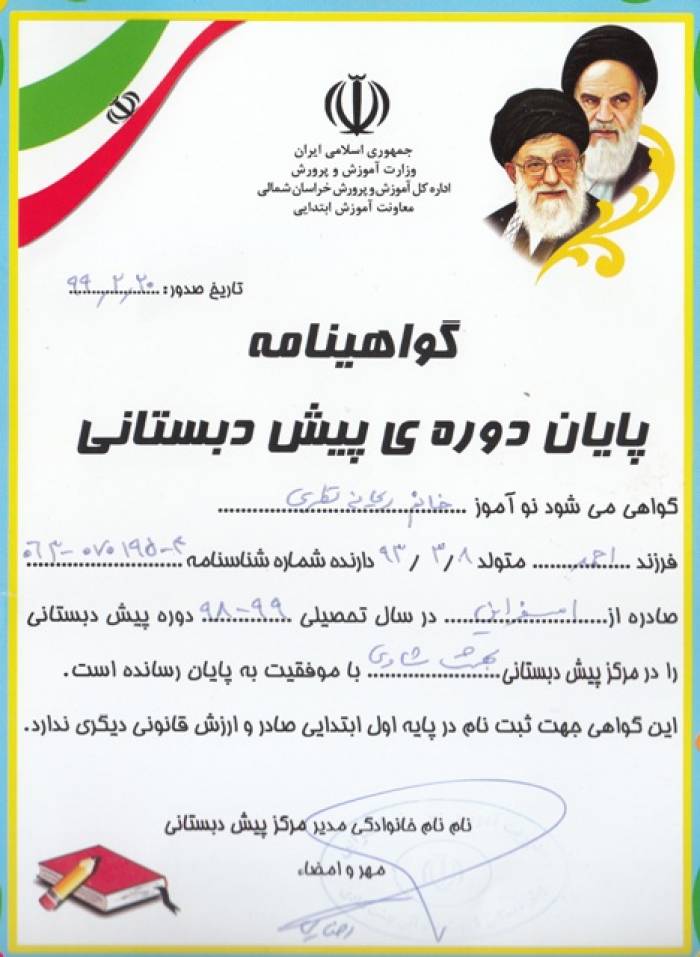 جمهوری اسلامی ایران
وزارت آموزش و پرورش
اداره کل آموزش و پرورش خراسان شمالی
معاونت آموزش ابتدایی
تاریخ صدور: ۹۹٫۲٫۲۰
گواهینامه
پایان دوره ی پیش دبستانی
گواهی می شود نو آموز خانم ریحانه
فرزند احمد متولد ۹۳٫۳٫۸ دارنده شماره شناسنامه ۰۶۳-۰۷۰۱۹۵-۴
صادره از اسفراین در سال تحصیلی ۹۸-۹۹ دوره پیش دبستانی
را در مرکز پیش دبستانی بهشت شادی با موفقیت به پایان رسانده است.
این گواهی جهت ثبت نام در پایه اول ابتدایی صادر و ارزش قانونی دیگری ندارد.
نام نام خانوادگی مدیر مرکز پیش دبستانی
مهر و امضاء